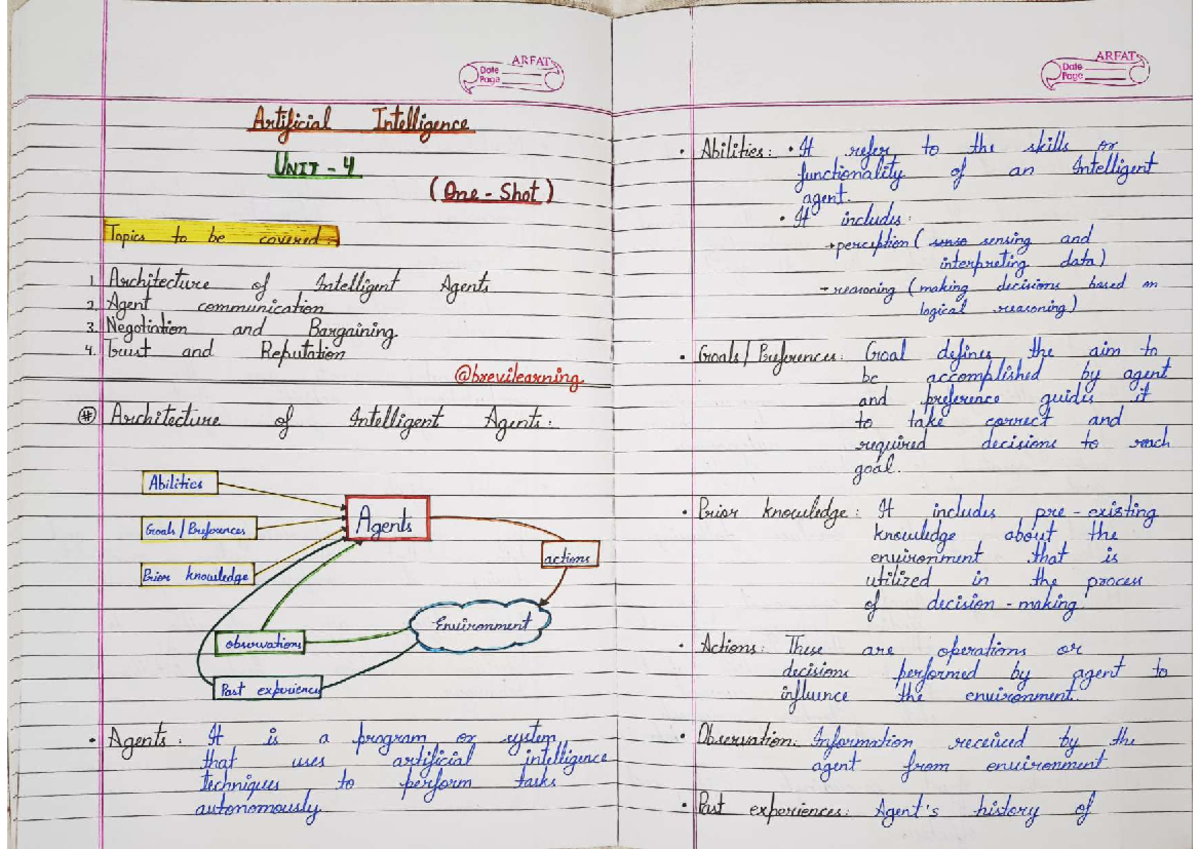 ARFAT
Date
Page
Artificial Intelligence
UNIT - 4
(One - Shot)
Topics to be covered :
1. Architecture of Intelligent Agents
2. Agent communication
3. Negotiation and Bargaining
4. Trust and Reputation
@brevilearning
# Architecture of Intelligent Agents :
Abilities
Goals / Preferences
Prior knowledge
Agents
actions
Environment
observations
Past experience
• Agents : It is a program or system
that uses artificial intelligence
techniques to perform tasks
autonomously.
ARFAT
Date
Page
• Abilities : • It refer to the skills or
functionality of an Intelligent
agent.
• It includes :
→ perception ( sense sensing and
interpreting data)
→ reasoning (making decisions based on
logical reasoning)
• Goals / Preferences : Goal defines the aim to
be accomplished by agent
and preference guides it
to take correct and
required decisions to reach
goal.
• Prior knowledge : It includes pre - existing
knowledge about the
environment that is
utilized in the process
of decision - making.
• Actions : These are operations or
decisions performed by agent to
influence the environment.
• Observation : Information received by the
agent from environment
• Past experiences : Agent's history of